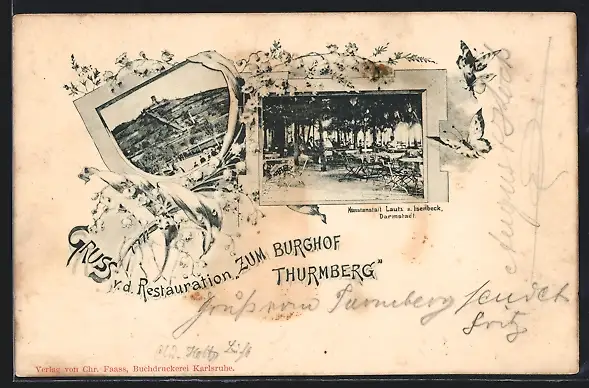 Kunstanstalt Lautz & Isenbeck,
Darmstadt.
GRUSS v. d. Restauration "ZUM BURGHOF
THURMBERG"
Gruß vom Turmberg sendet
Fritz
Verlag von Chr. Faass, Buchdruckerei Karlsruhe.